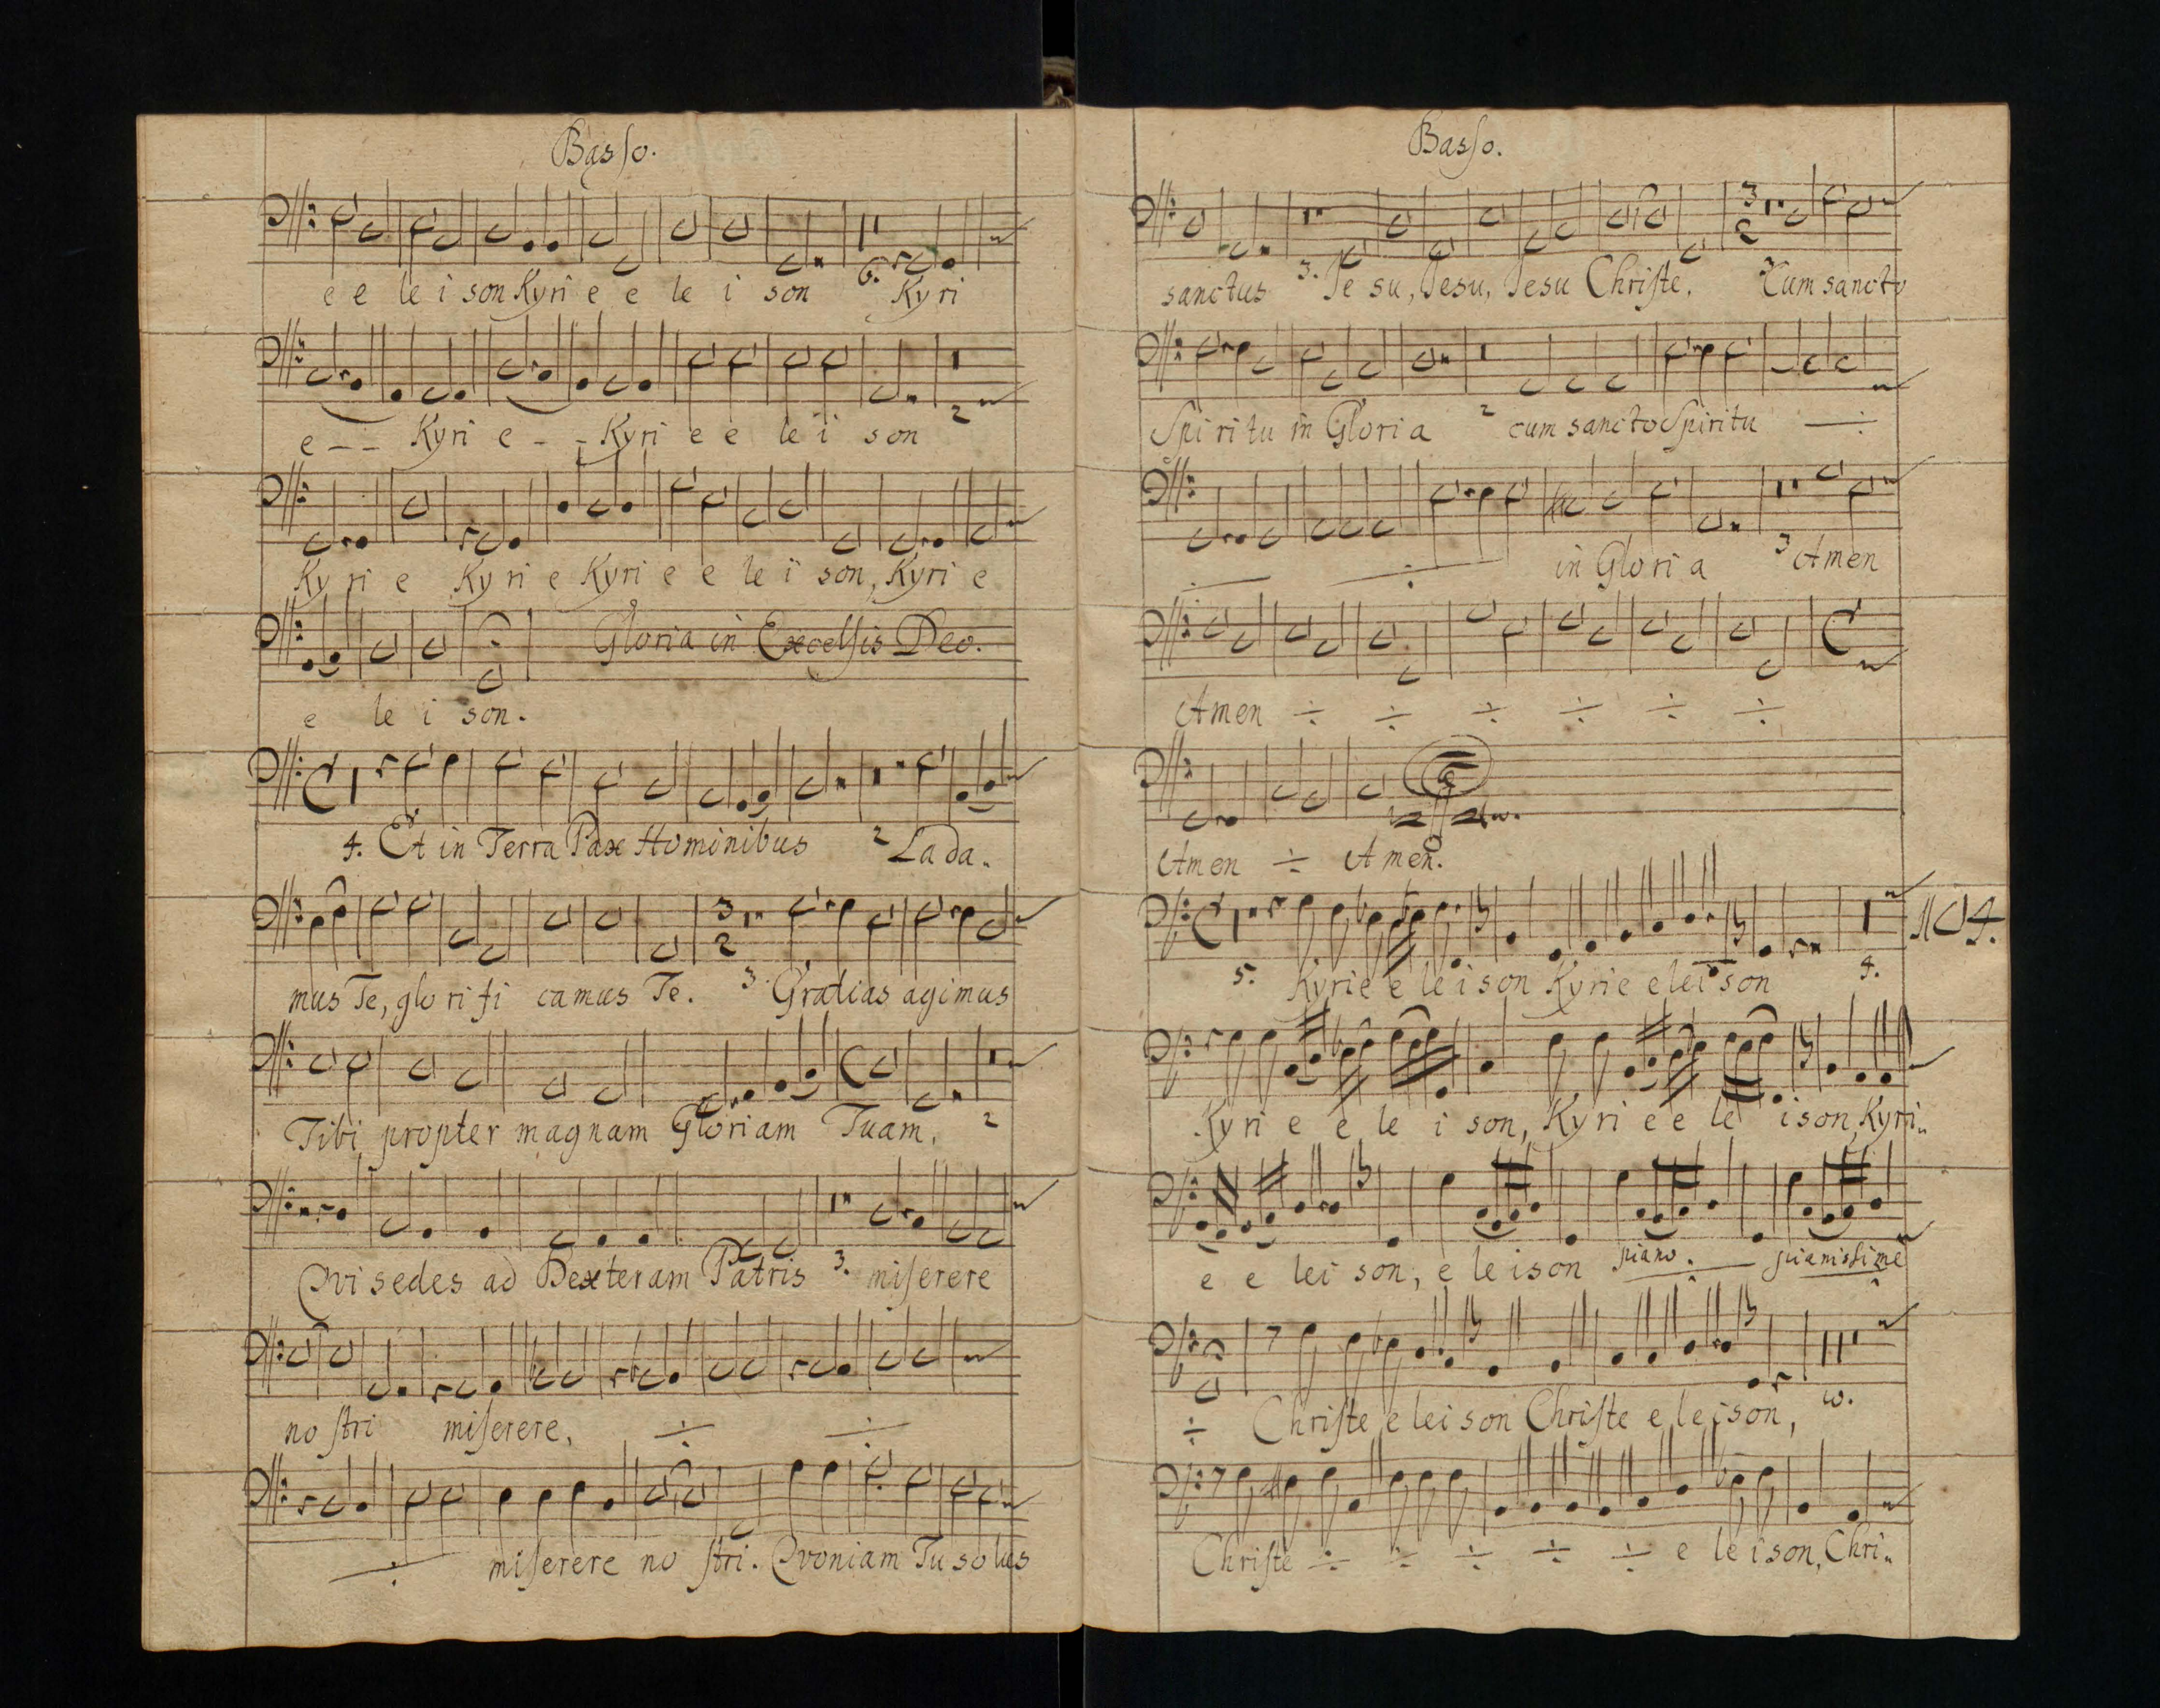 Basso.
e e le i son Kyri e e le i son 6. Kyri
e - - Kyri e - - Kyri e e le i son 2
Ky ri e Ky ri e Kyri e e le i son, Kyri e
Gloria in Excelsis Deo.
e le i son.
4. Et in Terra Pax Hominibus 2 Lada.
3 2
mus Te, glo ri fi camus Te. 3 Gratias agimus
Tibi propter magnam Gloriam Tuam, 2
Qvi sedes ad Dexteram Patris 3. miserere
no stri miserere, ÷ ÷
÷ miserere no stri. Qvoniam Tu solus
Basso.
3 2
sanctus 3. Je su, Jesu, Jesu Christe. Cum sancto
Spi ri tu in Gloria 2 cum sancto Spiritu ÷
÷ ÷ in Glori a 3 Amen
Amen ÷ ÷ ÷ ÷ ÷ ÷
Amen ÷ Amen.
No 4.
5. Kyrie e le i son Kyrie elei son 4.
Kyri e e le i son, Kyri e e le ison, Kyri..
e e lei son, e le ison piano. ÷ pianissime
÷ Christe e lei son Christe e le ison, w.
Christe ÷ ÷ ÷ ÷ ÷ e le ison, Chri..